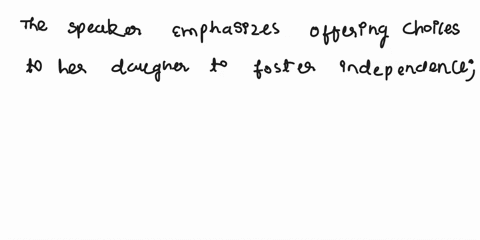 The speaker emphasizes offering choices
to her daugher to foster independence;